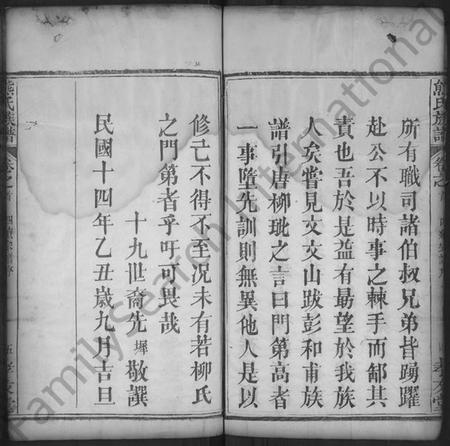 所有職司諸伯叔兄弟皆踴躍
赴公不以時事之棘手而郤其
責也吾於是益有勗望於我族
人矣嘗見文文山跋彭和甫族
譜引唐柳玭之言曰門第高者
一事墮先訓則無異他人是以
修己不得不至况未有若柳氏
之門第者乎吁可畏哉
十九世裔先墀敬譔
民國十四年乙丑歲九月吉旦
熊氏族譜
熊氏族譜
FamilySearch International